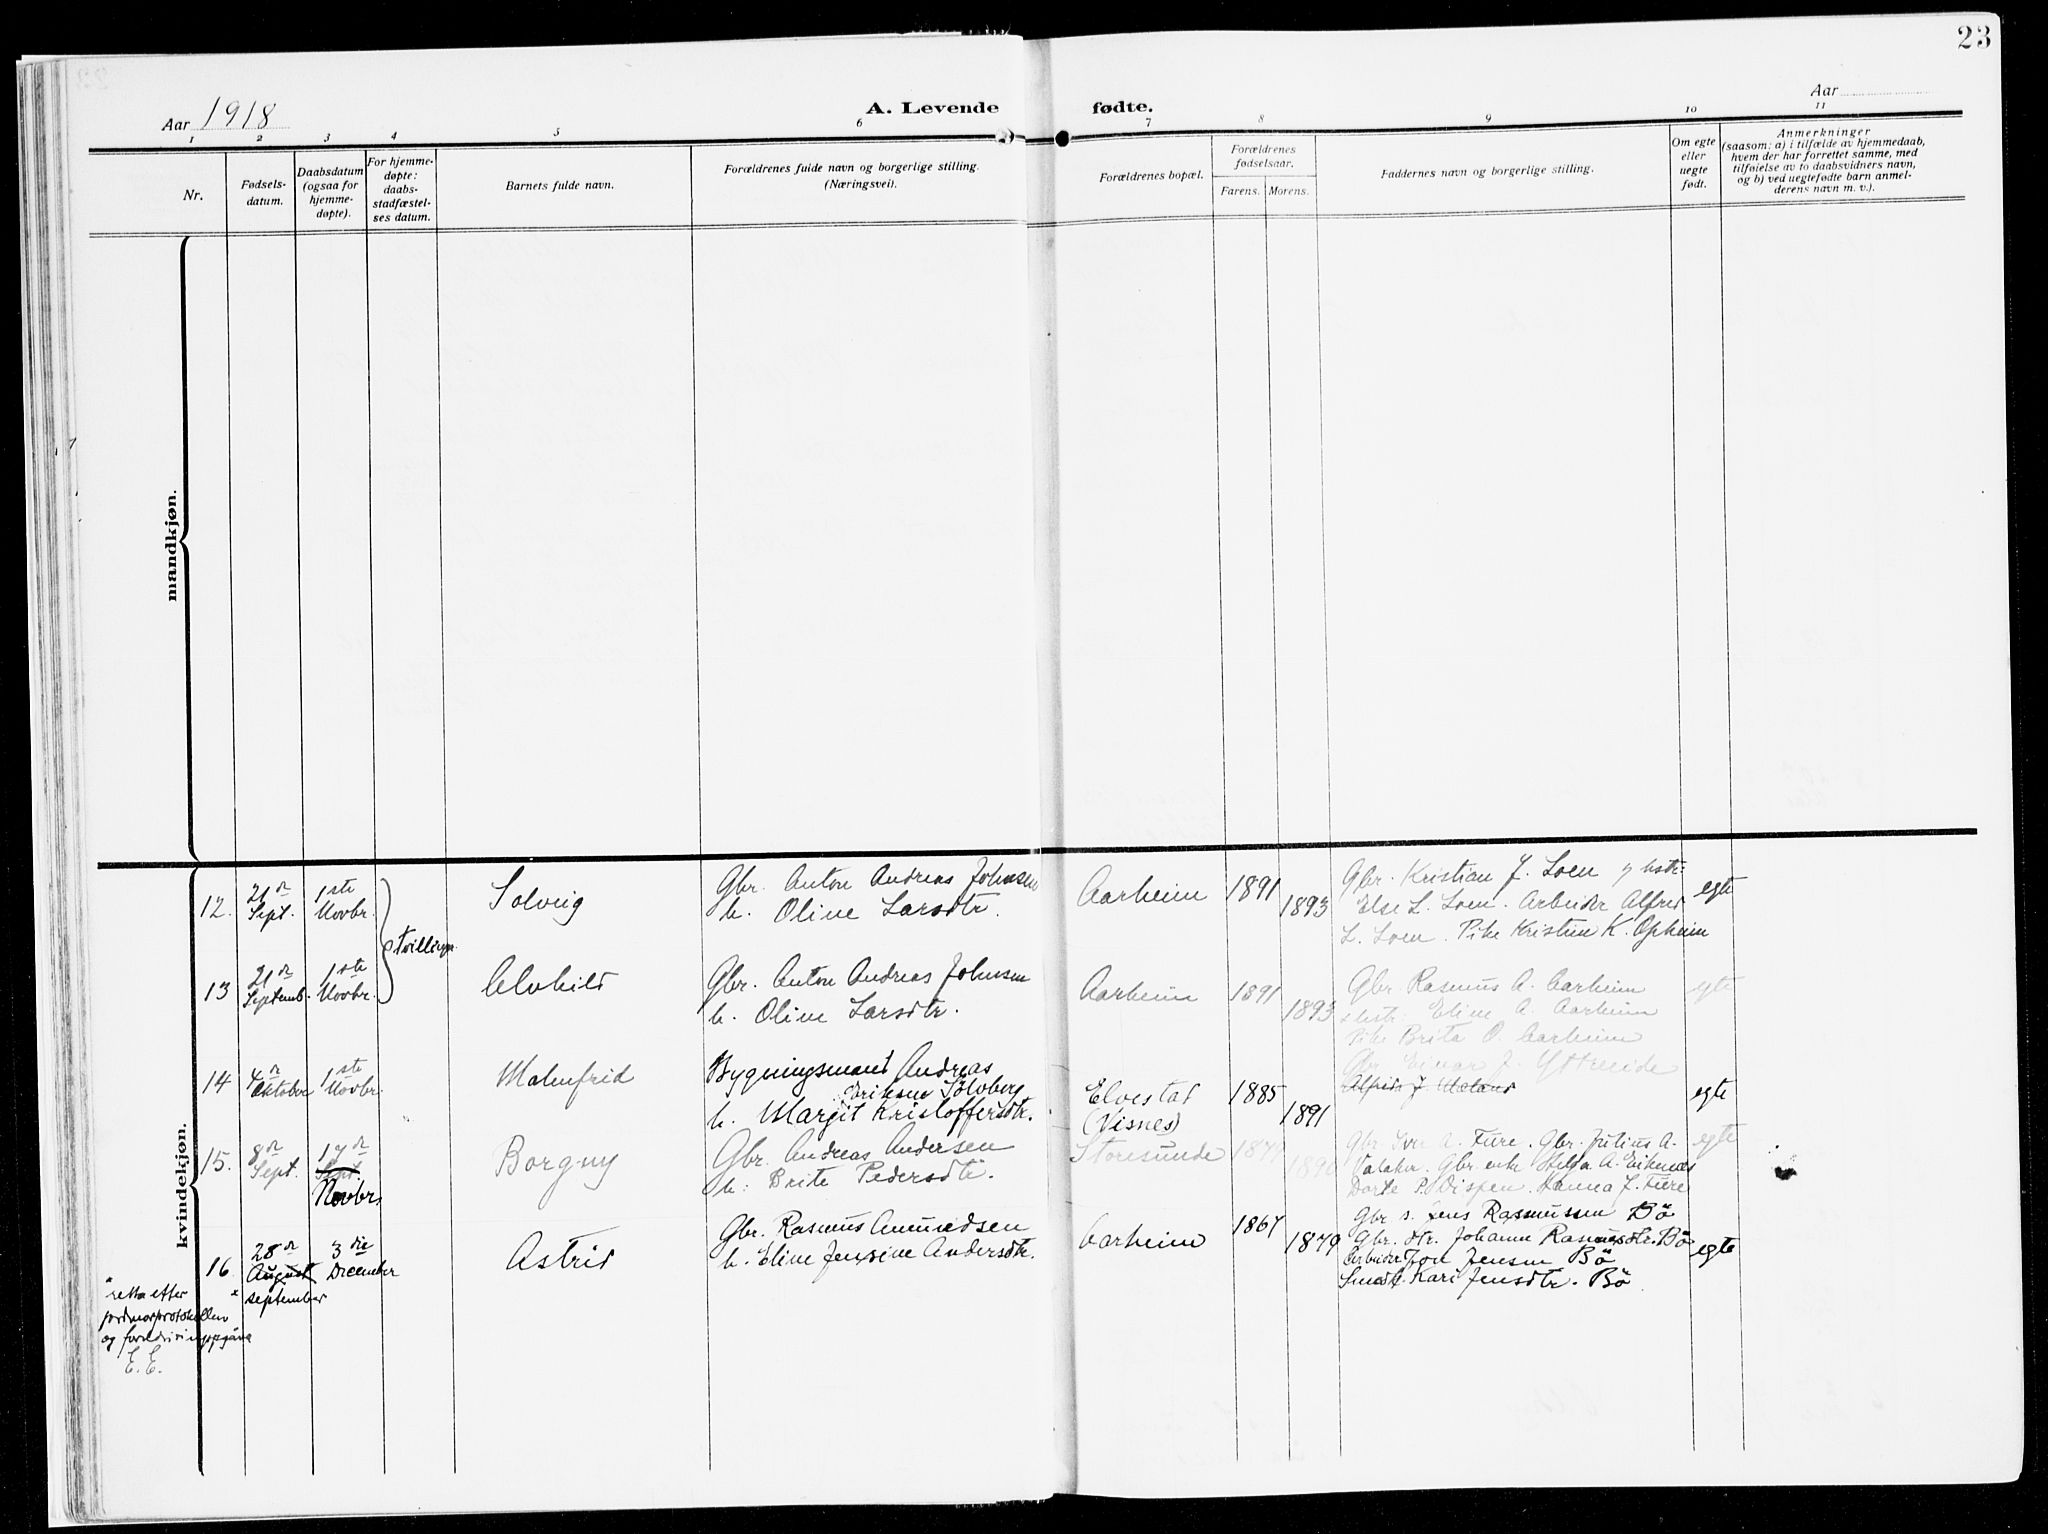 23
Aar 1918
A. Levende fødte.
Aar
1 2 3 4 5 6 7 8 9 10 11
Nr.
Fødsels-
datum.
Daabsdatum
(ogsaa for
hjemme-
døpte).
For hjemme-
døpte:
daabs-
stadfæstel-
ses datum.
Barnets fulde navn.
Forældrenes fulde navn og borgerlige stilling.
(Næringsvei).
Forældrenes bopæl.
Forældrenes
fødselsaar.
Farens. Morens.
Faddernes navn og borgerlige stilling.
Om egte
eller
uegte
født.
Anmerkninger
(saasom: a) i tilfælde av hjemmedaab,
hvem der har forrettet samme, med
tilføielse av to daabsvidners navn,
og b) ved uegtefødte barn anmel-
derens navn m. v.).
mandkjøn.
kvindekjøn.
12.
21 de
Sept.
1ste
Novbr.
tvillinger
Solveig
Gbr. Anton Andreas Johnsen
h. Oline Larsdtr.
Aarheim
1891
1893
Gbr. Kristian J. Loen og hstr:
Else L. Loen. Arbeider Alfred
L. Loen. Pike Kristine K. Opheim
egte
13
21 de
Septemb.
1ste
Novbr.
Alvhild
Gbr. Anton Andreas Johnsen
h. Oline Larsdtr.
Aarheim
1891
1893
Gbr. Rasmus A. Aarheim
hstr: Eline A. Aarheim
Pike Brita O. Aarheim
Gbr Einar J. Ytreeide
egte
14
4 de
Oktober
1ste
Novbr.
Malmfrid
Bygningsmand Andreas
Eriksen Sölvberg
h. Margit Kristoffersdtr.
Elvestad
(Visnes)
1885
1891
Alfrid J Mæland
egte
15.
8 de
Sept.
17 de
Sept.
Novbr.
Borgny
Gbr. Andreas Andersen
h: Brite Pedersdtr.
Storesunde
1879
1890
Gbr Iver A. Fure. Gbr. Julius A.
Valaker. Gbr enke Helga A. Eiknæs
Dorte P. Dispen. Hanna J. Fure
egte
16
28 de
August
september
3 die
December
Astrid
Gbr. Rasmus Amundsen
h. Eline Jensine Andersdtr.
Aarheim
1867
1879
Gbr s. Jens Rasmussen Bö
Gbr. dtr. Johanne Rasmusdtr. Bö
Arbeider Jon Jensen Bö
Kari Jensdtr. Bö
egte
retta etter
jordmorprotokollen
og foreldri si uppgåva
E. E.